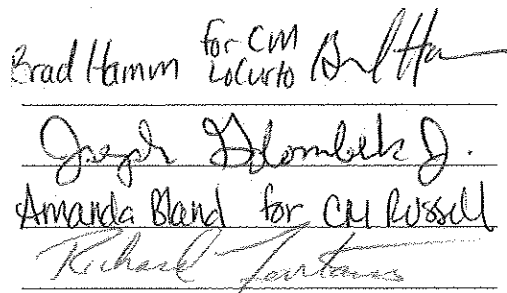 Brad Hamm for CM LoCurto Brad Ham
Joseph Golombek Jr.
Amanda Bland for CM Russell
Richard Fontana